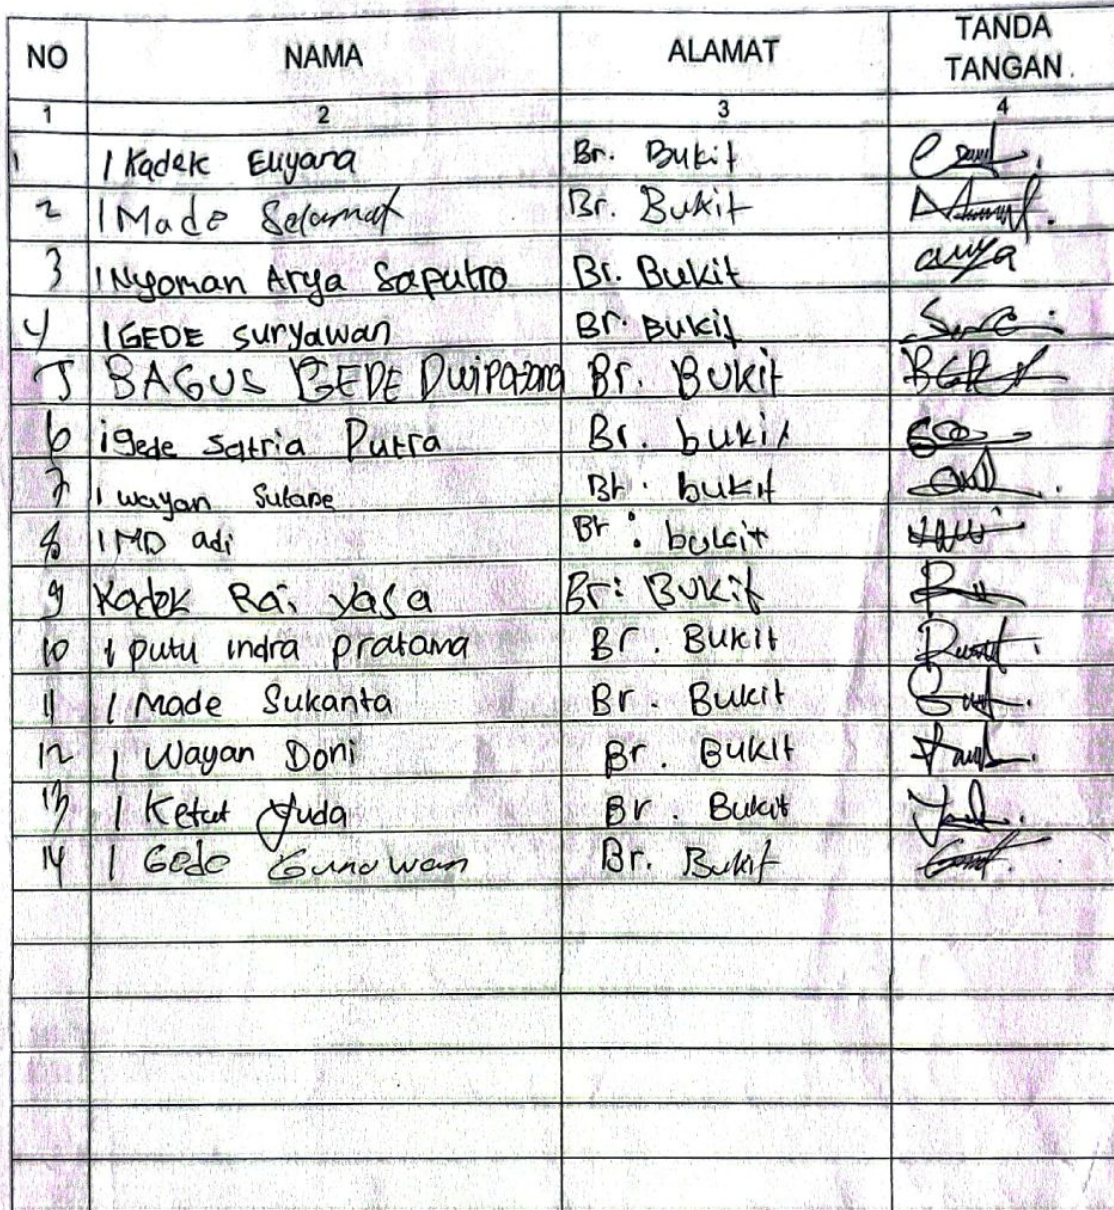 NO NAMA ALAMAT TANDA TANGAN.
1 2 3 4
1 I Kadek Eliyana Br. Bukit
2 I Made Selamat Br. Bukit
3 I Nyoman Arya Saputro Br. Bukit arya
4 I GEDE suryawan Br. Bukit
5 BAGUS GEDE Br. Bukit
6 i gede satria Putra Br. bukit
7 I wayan Br. bukit
8 I MD adi Br : bukit
9 Kadek Rai yasa Br: Bukit
10 I putu indra pratama Br. Bukit
11 I Made Sukanta Br. Bukit
12 I Wayan Doni Br. Bukit
13 I Ketut Yuda Br. Bukit
14 I Gede Gunawan Br. Bukit